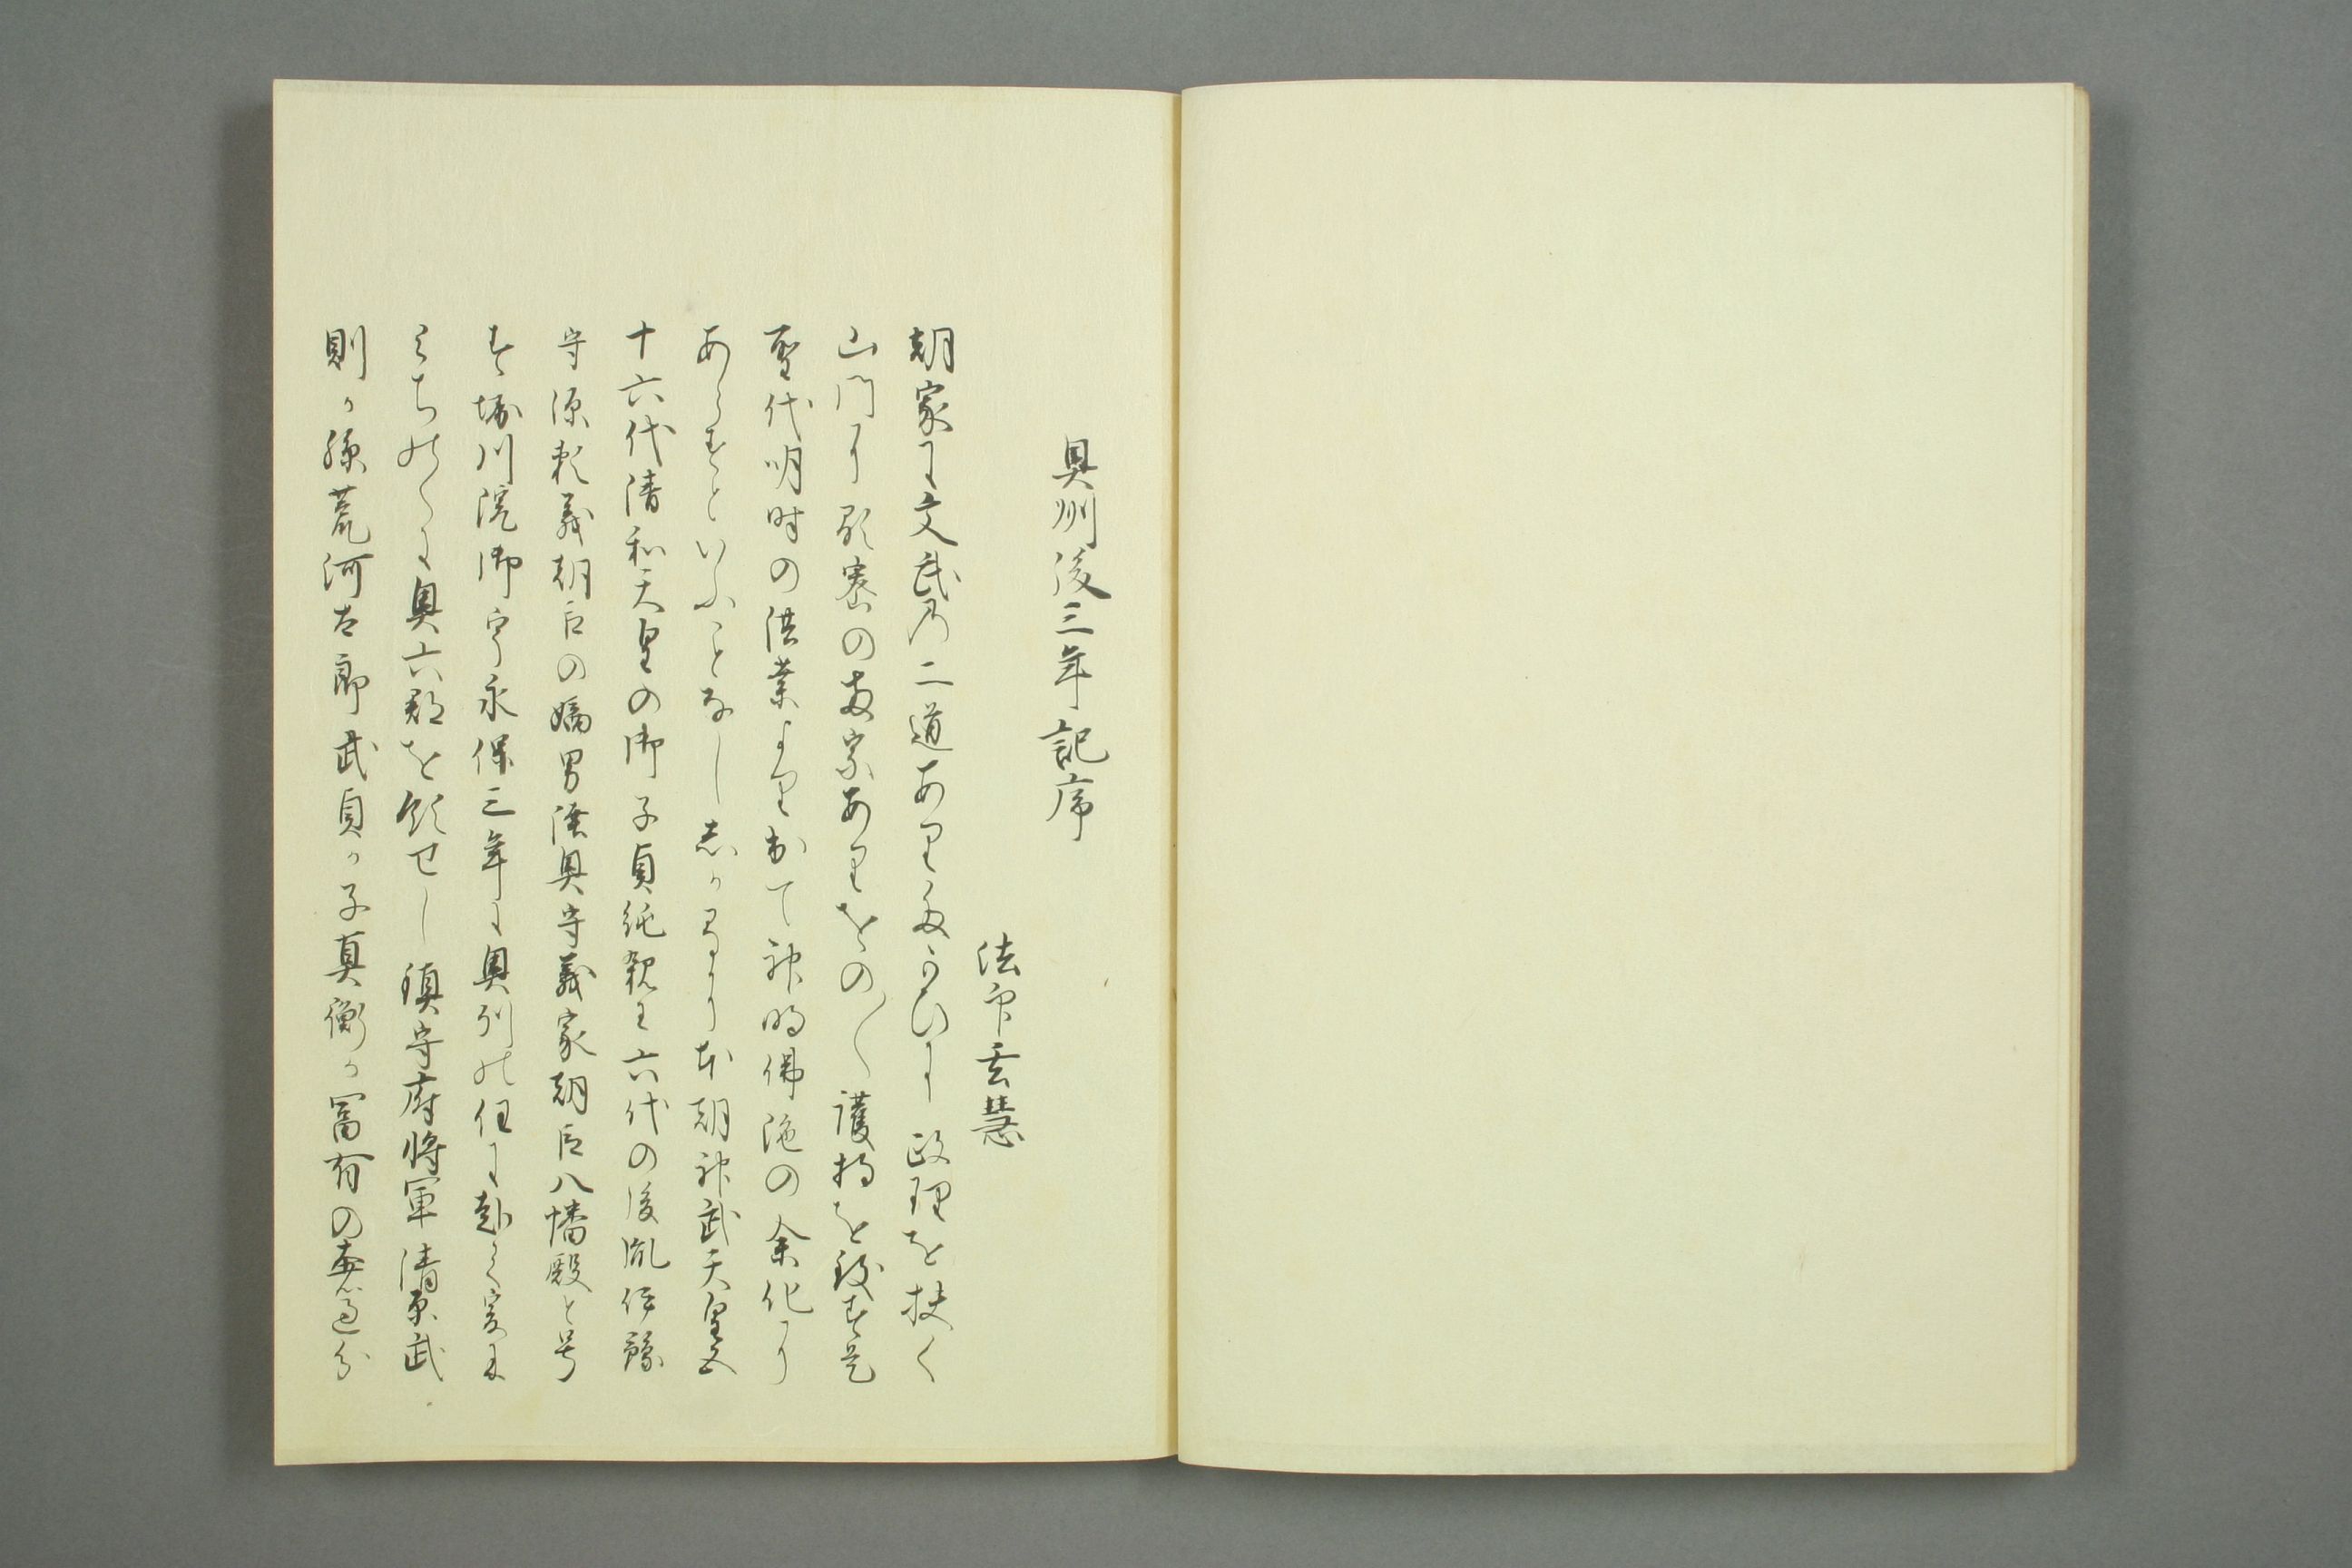 奥州後三年記序
法印玄慧
朝家に文武乃二道ありたかひに政理を扶く
山門に顕密の両宗ありをの〱護持を致す是
聖代明時の洪業より出て神明佛陁の余化に
あらすといふことなし志かるに本朝神武天皇五
十六代清和天皇の御子貞純親王六代の後胤伊豫
守源頼義朝臣の嫡男陸奥守義家朝臣八幡殿と号
す堀川院御宇永保三年に奥州の任に赴く爰に
みちのくに奥六郡を領せし鎮守府将軍清原武
則か孫荒河太郎武貞か子真衡か冨有の奢過分